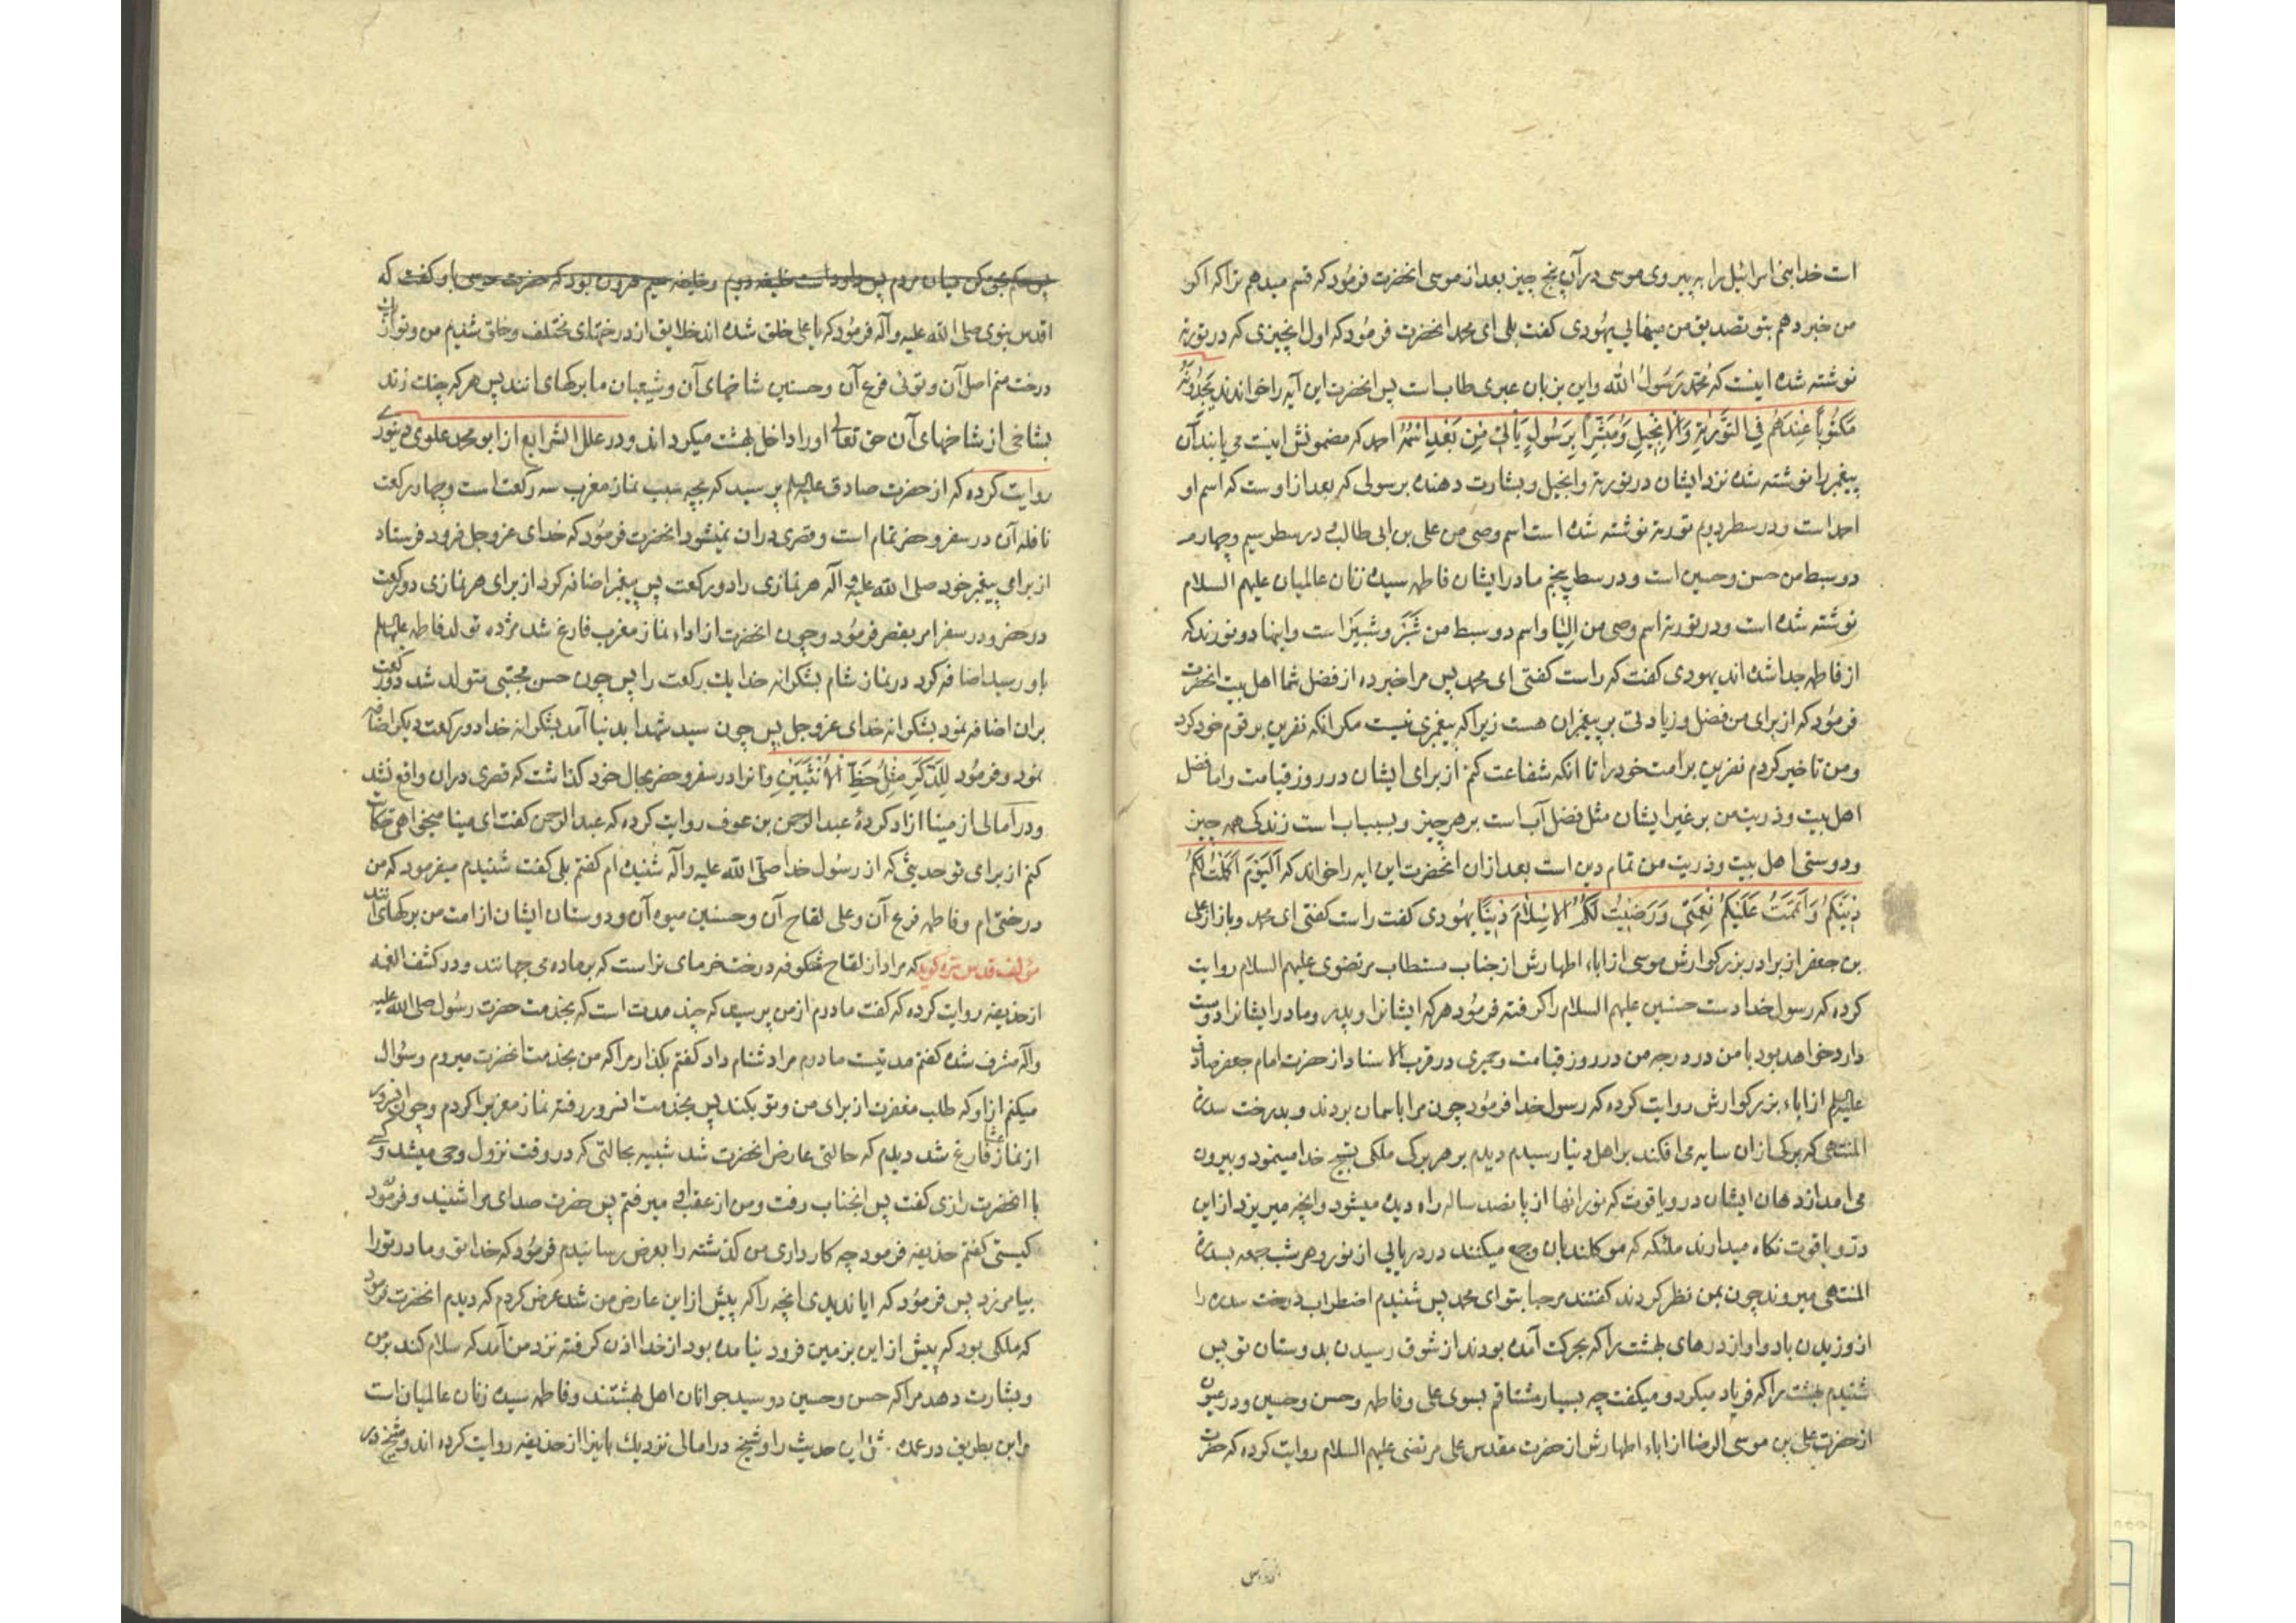 است خدا بنی اسرائیل را به پیروی موسی در آن پنج چیز بعد از موسی انحضرت فرمود که قسم میدهم ترا که اکر
من خبر دهم بتو تصدیق من مینمایی یهودی کفت بلی ای محمد انحضرت فرمود که اول انچیزی که در توریة
نوشته شده اینست که محمد رسول الله و این بزبان عبری طاب است پس انحضرت این آیه را خواندند یَجِدُونَهُ
مَکتُوباً عِندَهُم فِی التَّورٰیةِ وَالاِنجِیلِ وَمُبَشِّراً بِرَسُولٍ یَأتِی مِن بَعدِی اسمُهُ احمد که مضمونش اینست می یابند آن
پیغمبر را نوشته شده نزد ایشان در توریة و انجیل و بشارت دهنده برسولی که بعد از اوست که اسم او
احمد است و در سطر دویم توریة نوشته شده است اسم وصی من علی بن ابی طالب و در سطر سیم و چهارم
دو سبط من حسن و حسین است و در سطر پنجم مادر ایشان فاطمه سیده زنان عالمیان علیهم السلام
نوشته شده است و در توریة اسم وصی من اِلِیّا و اسم دو سبط من شَبَّر و شبیر است و اینها دو نورند که
از فاطمه جدا شده اند یهودی کفت که راست کفتی ای محمد پس مرا خبر ده از فضل شما اهل بیت انحضرت
فرمود که از برای من فضل و زیادتی بر پیغمبران هست زیرا که پیغمبری نیست مکر انکه نفرین بر قوم خود کرد
و من تاخیر کردم نفرین بر امت خود را تا انکه شفاعت کنم از برای ایشان در روز قیامت و اما فضل
اهل بیت و ذریت من بر غیر ایشان مثل فضل آب است بر هر چیز و بسبب اب است زندکی همه چیز
و دوستی اهل بیت و ذریت من تمام دین است بعد ازان انحضرت این ایه را خواند که اَلیَومَ اَکمَلتُ لَکُم
دِینَکُم وَاَتمَمتُ عَلَیکُم نِعمَتِی وَرَضِیتُ لَکُمُ الاِسلَامَ دِیناً یهودی کفت راست کفتی ای محمد و باز از علی
بن جعفر از برادر بزرکوارش موسی از اباء اطهارش از جناب مستطاب مرتضوی علیهم السلام روایت
کرده که رسول خدا دست حسنین علیهم السلام را کرفته فرمود هر که ایشانرا و پدر و مادر ایشانرا دوست
دارد خواهد بود با من در درجه من در روز قیامت و حمیری در قرب الاسناد از حضرت امام جعفر صادق
علیه السلم از اباء بزرکوارش روایت کرده که رسول خدا فرمود چون مرا باسمان بردند و بدرخت سدرة
المنتهی که برکی ازان سایه می افکند بر اهل دنیا رسیدم دیدم بر هر برک ملکی تسبیح خدا مینمود و بیرون
می امد از دهان ایشان در و یاقوت که نور انها از پانصد ساله راه دیده میشود و انچه میریزد از این
در و یاقوت نکاه میدارند ملئکه که موکلند بان و جمع میکنند در دریایی از نور و هر شب جمعه بسدرة
المنتهی میروند چون بمن نظر کردند کفتند مرحبا بتو ای محمد پس شنیدم اضطراب درخت سدره را
از وزیدن باد و اواز درهای بهشت را که بحرکت آمده بودند از شوق رسیدن بدوستان تو پس
شنیدم بهشت را که فریاد میکرد و میکفت چه بسیار مشتاقم بسوی علی و فاطمه و حسن و حسین و در عیون
از حضرت علی بن موسی الرضا از اباء اطهارش از حضرت مقدس علی مرتضی علیهم السلام روایت کرده که حضرت
پس حکم بحق کن میان مردم پس داود است خلیفه دویم و خلیفه سیم هرون بود که حضرت موسی باو کفت که
اقدس نبوی صلی الله علیه و آله فرمود که یا علی خلق شده اند خلایق از درختهای مختلف و خلق شدیم من و تو از ان
درخت منم اصل آن و توئی فرع آن و حسنین شاخهای آن و شیعیان ما برکهای انند پس هر که چنک زند
بشاخی از شاخهای آن حق تعالی او را داخل بهشت میکرداند و در علل الشرایع از ابو محمد علوی دینوری
روایت کرده که از حضرت صادق علیه السلم پرسید که بچه سبب نماز مغرب سه رکعت است و چهار رکعت
نافله آن در سفر و حضر تمام است و قصری دران نمیشود انحضرت فرمود که خدای عز و جل فرود فرستاد
از برای پیغمبر خود صلی الله علیه و آله هر نمازی را دو رکعت پس پیغمبر اضافه کرد از برای هر نمازی دو رکعت
در حضر و در سفر امر بقصر فرمود و چون انحضرت از اداء نماز مغرب فارغ شد مژده تولد فاطمه علیها السلم
باو رسید اضافه کرد در نماز شام بشکرانه خدا یک رکعت را پس چون حسن مجتبی متولد شد دو رکعت
بران اضافه نمود بشکرانه خدای عز و جل پس چون سید شهدا بدنیا آمد بشکرانه خدا دو رکعت دیکر اضافه
نمود و فرمود لِلذَّکَرِ مِثلُ حَظِّ الاُنثَیَینِ و انرا در سفر و حضر بحال خود کذاشت که قصری دران واقع نشد
و در امالی از مینا ازاد کردهٔ عبد الرحمن بن عوف روایت کرده که عبد الرحمن کفت ای مینا میخواهی حکایت
کنم از برای تو حدیثی که از رسول خدا صلی الله علیه و آله شنیده ام کفتم بلی کفت شنیدم میفرمود که من
درختی ام و فاطمه فرع آن و علی لقاح آن و حسنین میوه آن و دوستان ایشان از امت من برکهای انند
مؤلف قدس سره کوید که مراد از لقاح شکوفه درخت خرمای نر است که بر ماده می جهانند و در کشف الغمه
از حذیفه روایت کرده که کفت مادرم از من پرسید که چند مدت است که بخدمت حضرت رسول صلی الله علیه
و آله مشرف شده کفتم مدتیست مادرم مرا دشنام داد کفتم بکذار مرا که من بخدمت انحضرت میروم و سؤال
میکنم از او که طلب مغفرت از برای من و تو بکند پس بخدمت انسرور رفته نماز مغرب را کردم و چون انسرور
از نماز عشا فارغ شد دیدم که حالتی عارض انحضرت شد شبیه بحالتی که در وقت نزول وحی میشد و کسی
با انحضرت رازی کفت پس انجناب رفت و من از عقب او میرفتم پس حضرت صدای مرا شنید و فرمود
کیستی کفتم حذیفه فرمود چه کار داری من کذشته را بعرض رسانیدم فرمود که خدا تو و مادر تو را
بیامرزد پس فرمود که ایا ندیدی انچه را که پیش از این عارض من شد عرض کردم که دیدم انحضرت فرمود
که ملکی بود که پیش از این بزمین فرود نیامده بود از خدا اذن کرفته نزد من آمد که سلام کند بر من
و بشارت دهد مرا که حسن و حسین دو سید جوانان اهل بهشتند و فاطمه سیده زنان عالمیان است
و ابن بطریق در عمده این حدیث را و شیخ در امالی نزدیک باینرا از حذیفه روایت کرده اند و شیخ در